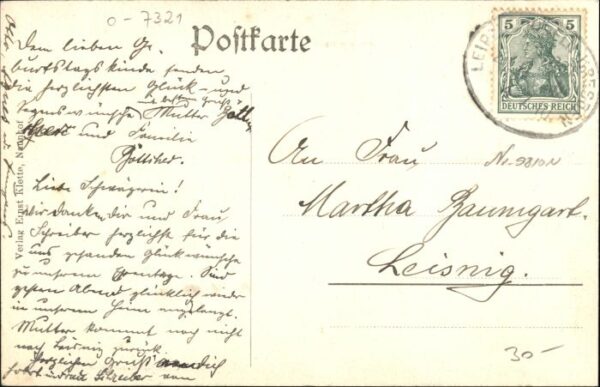 0-7321
Postkarte
5 5
DEUTSCHES REICH
Dem lieben Ge-
burtstagskinde senden
die herzlichsten Glück- und
Segenswünsche Mutter
und Familie
Böttcher.
Liebe Schwägerin!
Wir danken dir und Frau
Schreiber herzlichst für die
uns Glückwünsche
zu unserem Sind
gestern Abend glücklich wieder
in unserem Heim angelangt.
Mutter kommt noch nicht
nach Leisnig zurück.
Herzlichen Gruß
Schreiber von
Verlag Ernst Klette,
An Frau
Martha Baumgart.
Leisnig.
30-